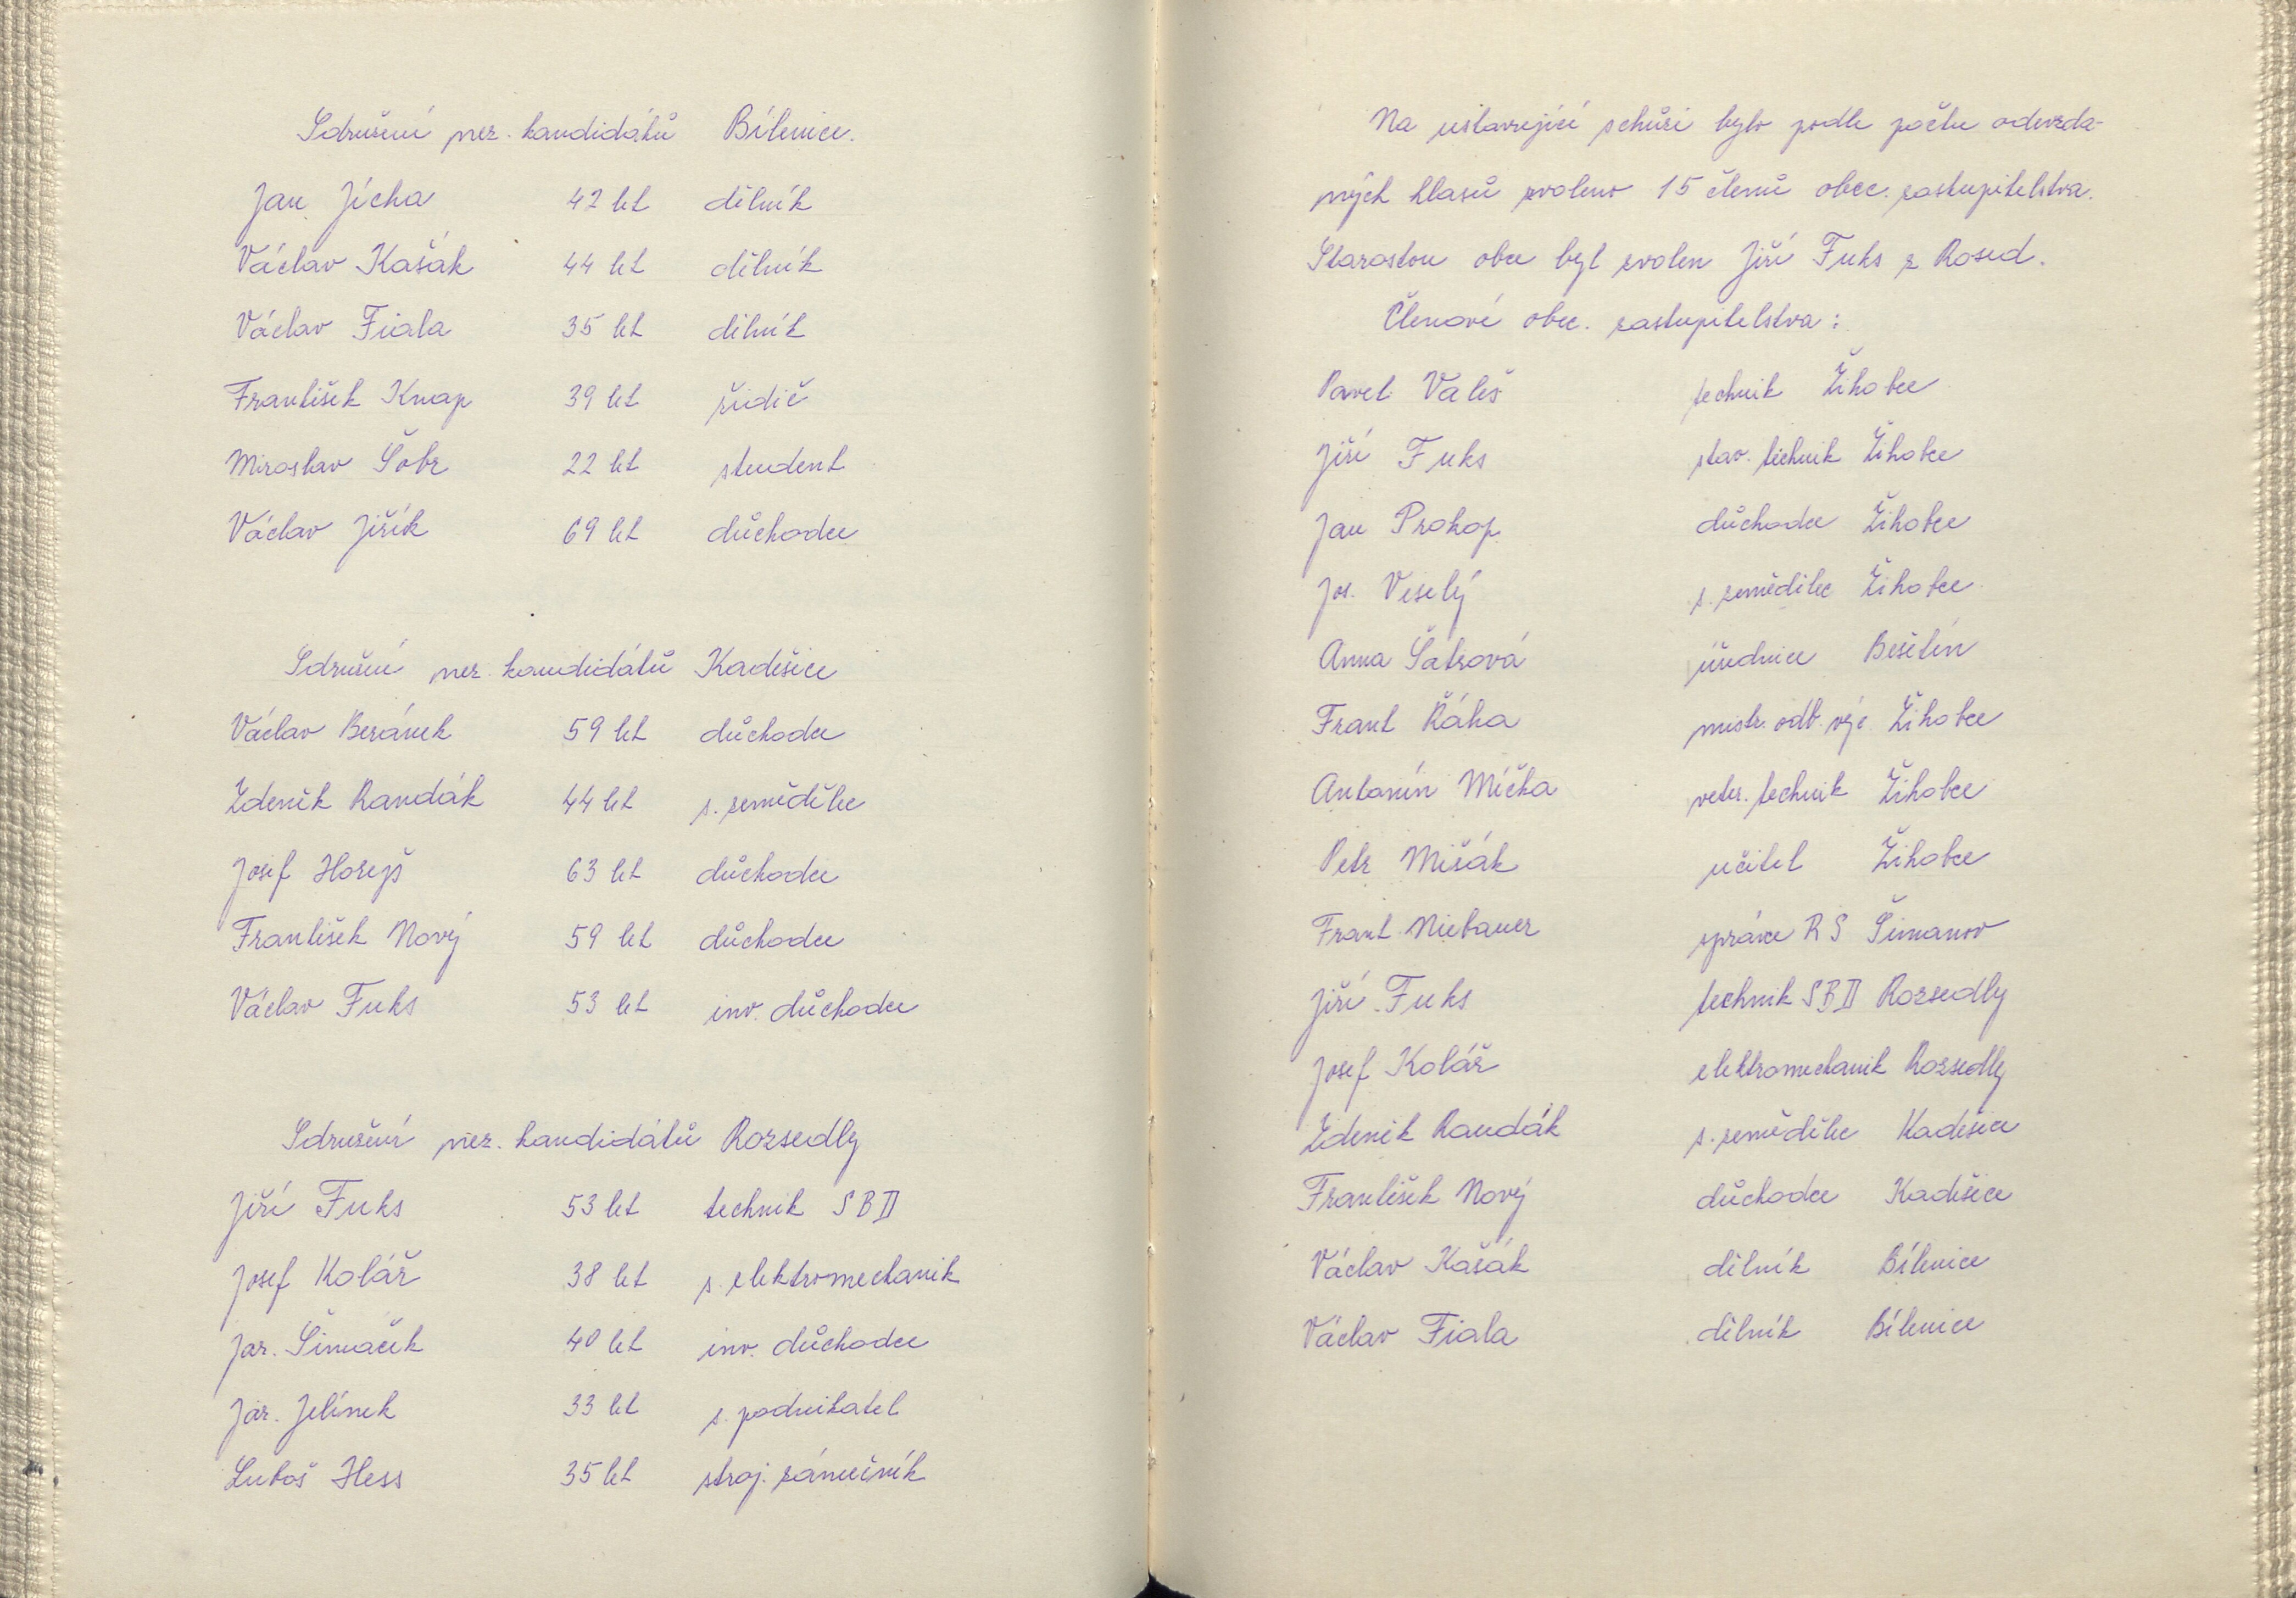 Sdružení nez. kandidátů Bílenice.
Jan Jícha 42 let dělník
Václav Kašák 44 let dělník
Václav Fiala 35 let dělník
František Knap 39 let řidič
Miroslav Šobr 22 let student
Václav Jiřík 69 let důchodce
Sdružení nez. kandidátů Kadešice
Václav Beránek 59 let důchodce
Zdeněk Randák 44 let s. zemědělec
Josef Horejš 63 let důchodce
František Nový 59 let důchodce
Václav Fuks 53 let inv. důchodce
Sdružení nez. kandidátů Rozsedly
Jiří Fuks 53 let technik SBD
Josef Kolář 38 let s. elektromechanik
Jar. Šimáček 40 let inv. důchodce
Jar. Jelínek 33 let s. podnikatel
Luboš Hess 35 let stroj. zámečník
Na ustavující schůzi bylo podle počtu odevzda-
ných hlasů zvoleno 15 členů obec. zastupitelstva.
Starostou obce byl zvolen Jiří Fuks z Rosed.
Členové obec. zastupitelstva:
Pavel Valeš technik Žihobce
Jiří Fuks stav. technik Žihobce
Jan Prokop důchodce Žihobce
Jos. Veselý s. zemědělec Žihobce
Anna Šatrová úřednice Bešetín
Frant Řáha mistr. odb. výc Žihobce
Antonín Mička veter. technik Žihobce
Petr Mišák učitel Žihobce
Frant. Niebauer správce RS Šimanov
Jiří Fuks technik SBD Rozsedly
Josef Kolář elektromechanik Rozsedly
Zdeněk Randák s. zemědělec Kadešice
František Nový důchodce Kadešice
Václav Kašák dělník Bílenice
Václav Fiala dělník Bílenice